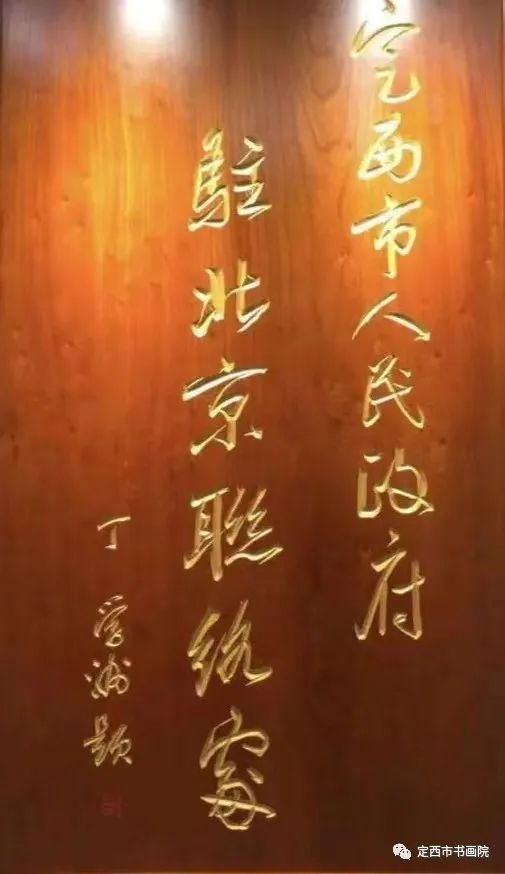 定西市人民政府
駐北京聯絡處
丁 題
定西市书画院